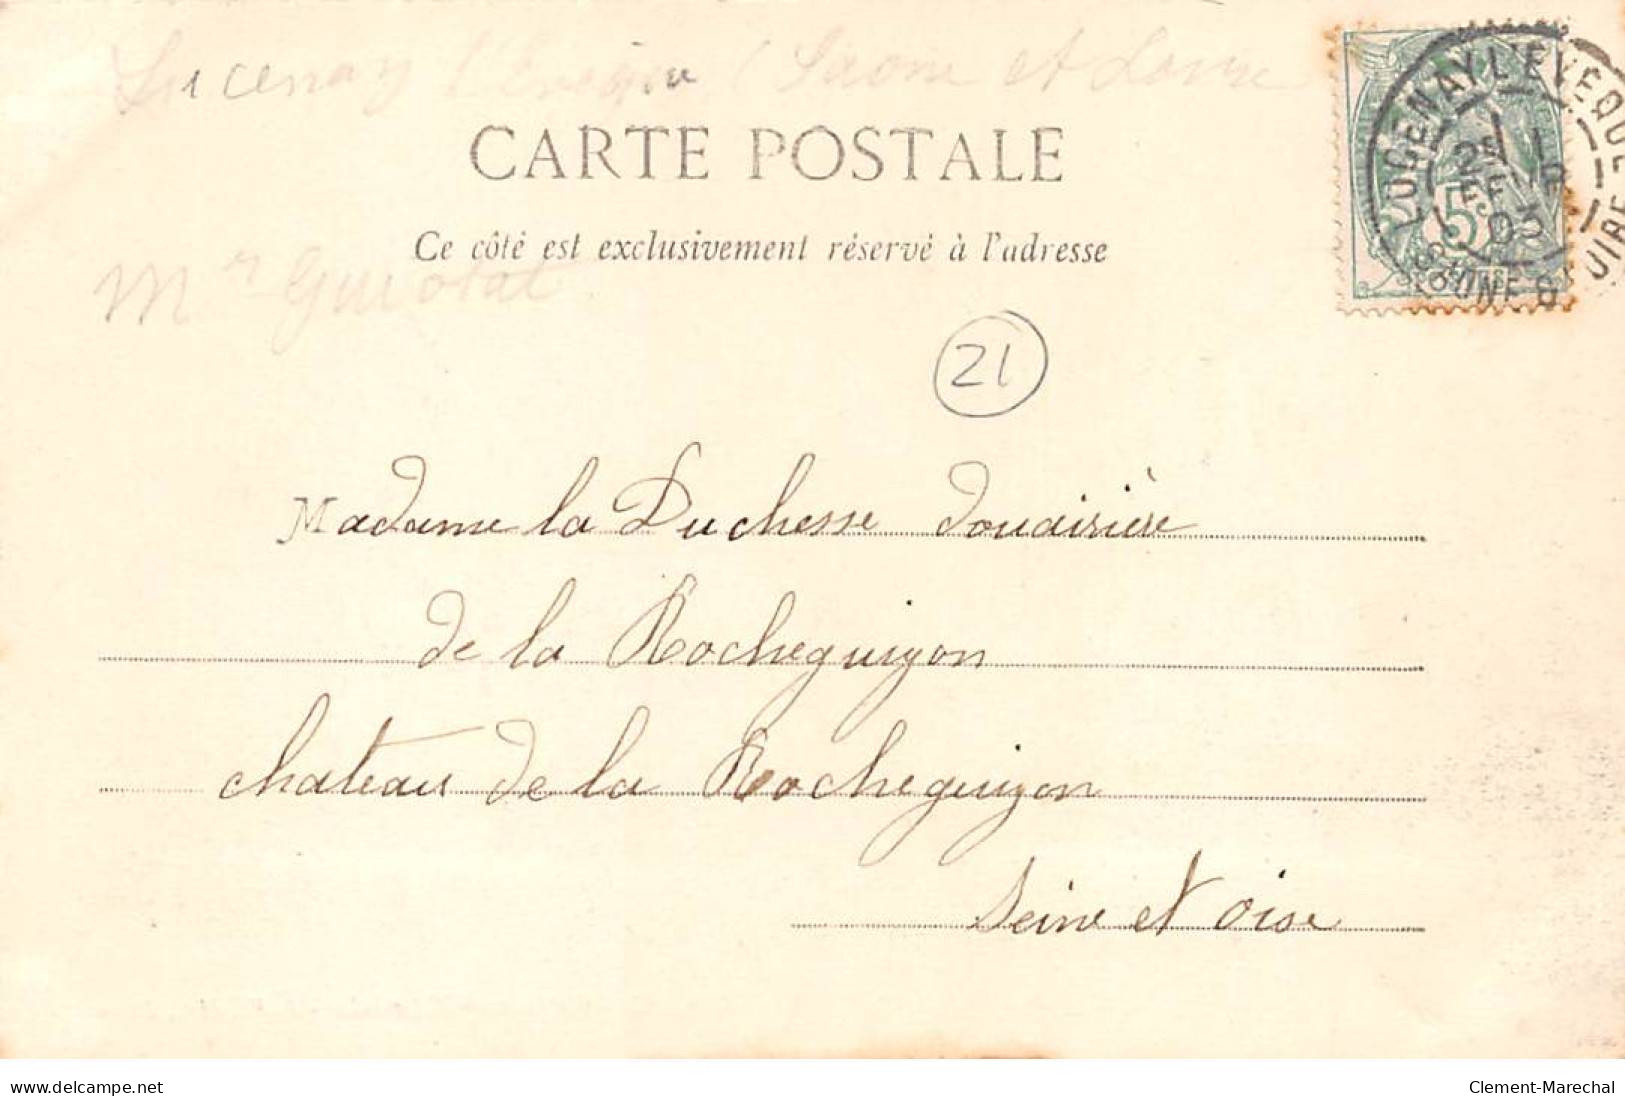 Lucenay l'Evêque (Saone et Loire
CARTE POSTALE
Ce côté est exclusivement réservé à l'adresse
Mr Guiotat
21
LUCENAY L'EVEQUE
SAONE & LOIRE
5
03
Madame la Duchesse douairière
de la Rocheguyon
chateau de la Rocheguyon
Seine et Oise
www.delcampe.net
Clement-Marechal